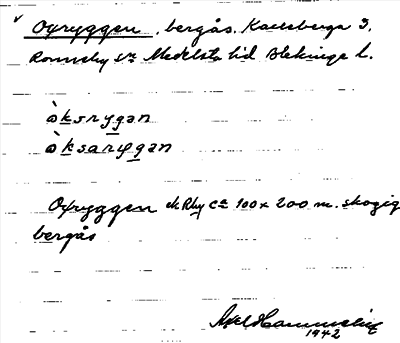 Oxryggen, bergås. Karlsberga 3,
Ronneby sn Medelsta hd Blekinge l.
òksrygan
òksarygan
Oxryggen ek Rby ca 100 x 200 m. skogig
bergås
Axel Hammelin
1942